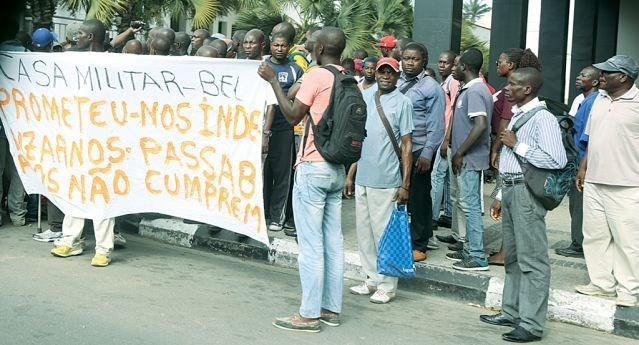 CASA MILITAR-BEL
PROMETEU-NOS INDE
VZARNOS-PASSAB
NÃO CUMPREM